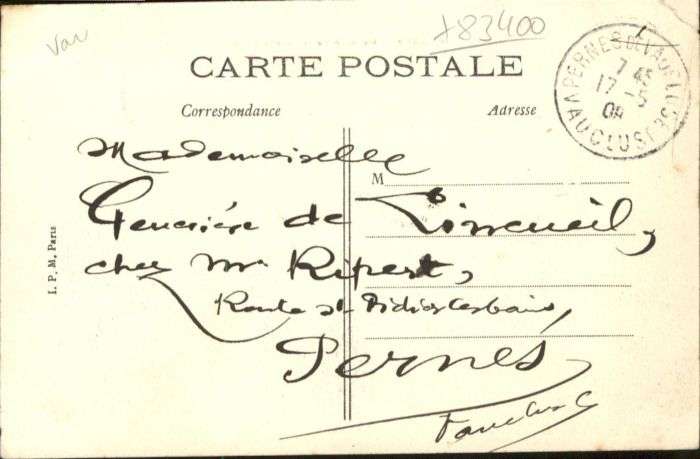 Var
+83400
CARTE POSTALE
Correspondance
Adresse
PERNES
7 45
17 - 5
VAUCLUSE
M
Mademoiselle
de
chez Mr Ripert,
Route St Didier les bains,
Pernes
Vaucluse
I. P. M. Paris